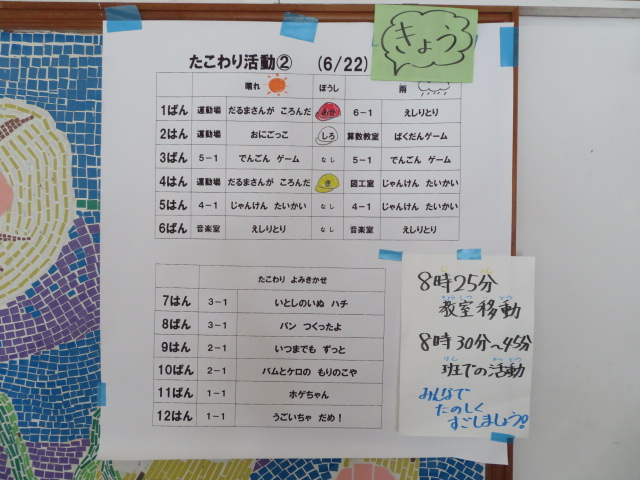 きょう
たこわり活動② (6/22)
晴れ ぼうし 雨
1ぱん 運動場 だるまさんが ころんだ あか 6－1 えしりとり
2はん 運動場 おにごっこ しろ 算数教室 ばくだんゲーム
3ぱん 5－1 でんごん ゲーム なし 5－1 でんごん ゲーム
4はん 運動場 だるまさんが ころんだ き 図工室 じゃんけん たいかい
5はん 4－1 じゃんけん たいかい なし 4－1 じゃんけん たいかい
6ぱん 音楽室 えしりとり なし 音楽室 えしりとり
たこわり よみきかせ
7はん 3－1 いとしのいぬ ハチ
8ぱん 3－1 パン つくったよ
9はん 2－1 いつまでも ずっと
10ぱん 2－1 バムとケロの もりのこや
11ぱん 1－1 ホゲちゃん
12はん 1－1 うごいちゃ だめ！
8時25分
教室移動
8時30分～45分
班での活動
みんなで
たのしく
すごしましょう!